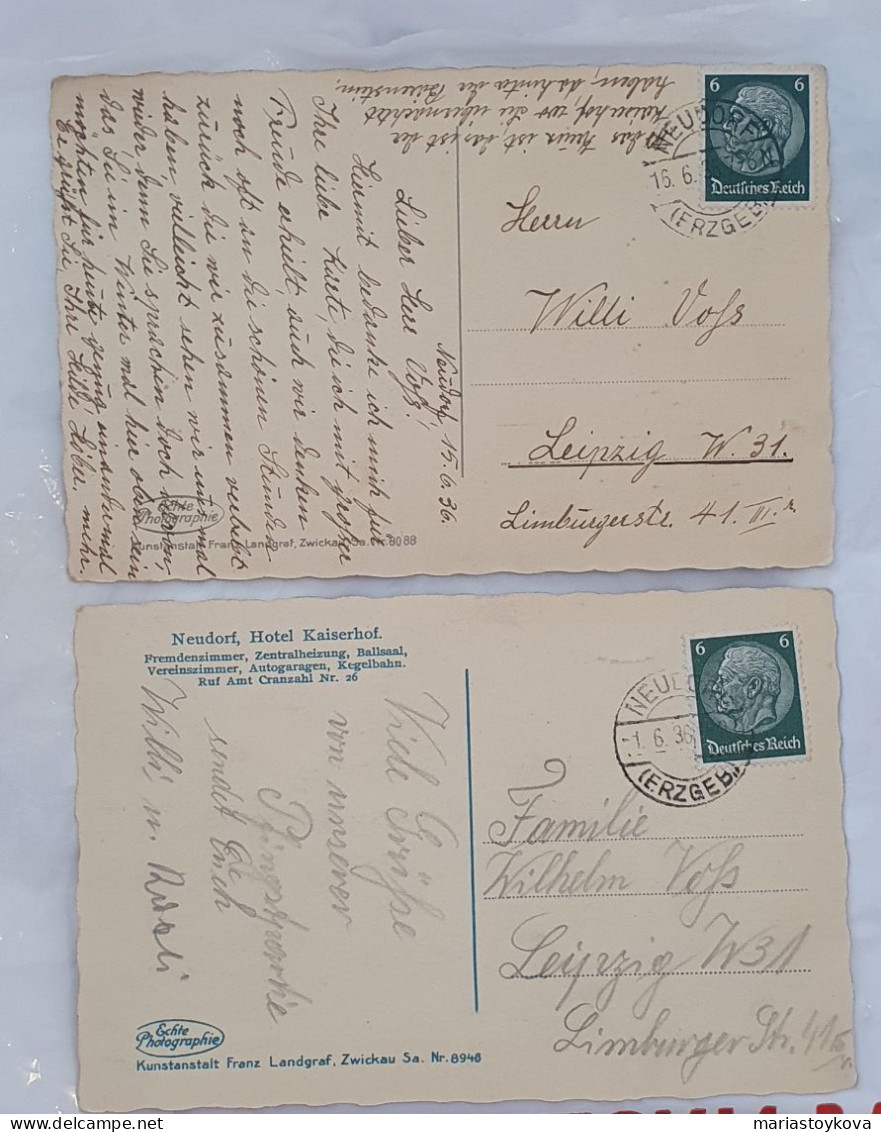 das Haus ist, das ist der
Kaiserhof, wo Sie übernachtet
haben, dahinter der Bärenstein.
Neudorf, 15.6.36.
Lieber Herr Voß!
Hiermit bedanke ich mich für
Ihre liebe Karte, die ich mit großer
Freude erhielt, auch wir denken
noch oft an die schönen Stunden
zurück die wir zusammen verlebt
haben, vielleicht sehen wir uns mal
wieder, denn Sie sprachen doch davon,
das Sie im Winter mal hier oben sein
möchten für heute genug, ein andermal mehr.
Es grüßt Sie, Ihre Hilde
Echte
Photographie
Kunstanstalt Franz Landgraf, Zwickau Sa. Nr. 8088
6 6
Deutsches Reich
NEUDORF
16.6.
(ERZGEB.)
Herrn
Willi Voss
Leipzig W. 31.
Limburgerstr. 41. III. r.
Neudorf, Hotel Kaiserhof.
Fremdenzimmer, Zentralheizung, Ballsaal,
Vereinszimmer, Autogaragen, Kegelbahn.
Ruf Amt Cranzahl Nr. 26
Viele Grüße
von unserer
Pfingstpartie
sendet Euch
Willi u.
Echte
Photographie
Kunstanstalt Franz Landgraf, Zwickau Sa. Nr. 8946
6 6
Deutsches Reich
1.6.36
(ERZGEB.)
Familie
Wilhelm Voss
Leipzig W31
Limburger Str. 41
mariastoykova